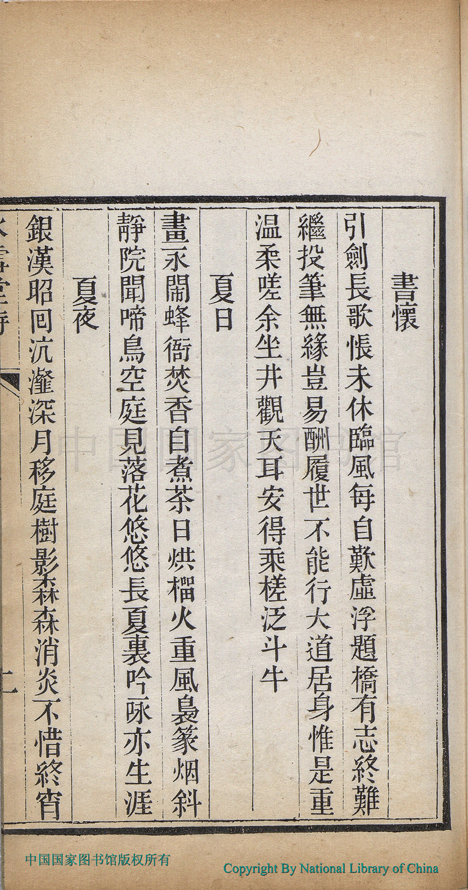 書懷
引劍長歌悵未休臨風每自歎虛浮題橋有志終難
繼投筆無緣豈易酬履世不能行大道居身惟是重
温柔嗟余坐井觀天耳安得乘槎泛斗牛
夏日
晝永鬧蜂衙焚香自煮茶日烘榴火重風裊篆烟斜
靜院聞啼鳥空庭見落花悠悠長夏裏吟咏亦生涯
夏夜
銀漢昭回沆瀣深月移庭樹影森森消炎不惜終宵
中国国家图书馆
中国国家图书馆版权所有
Copyright By National Library of China